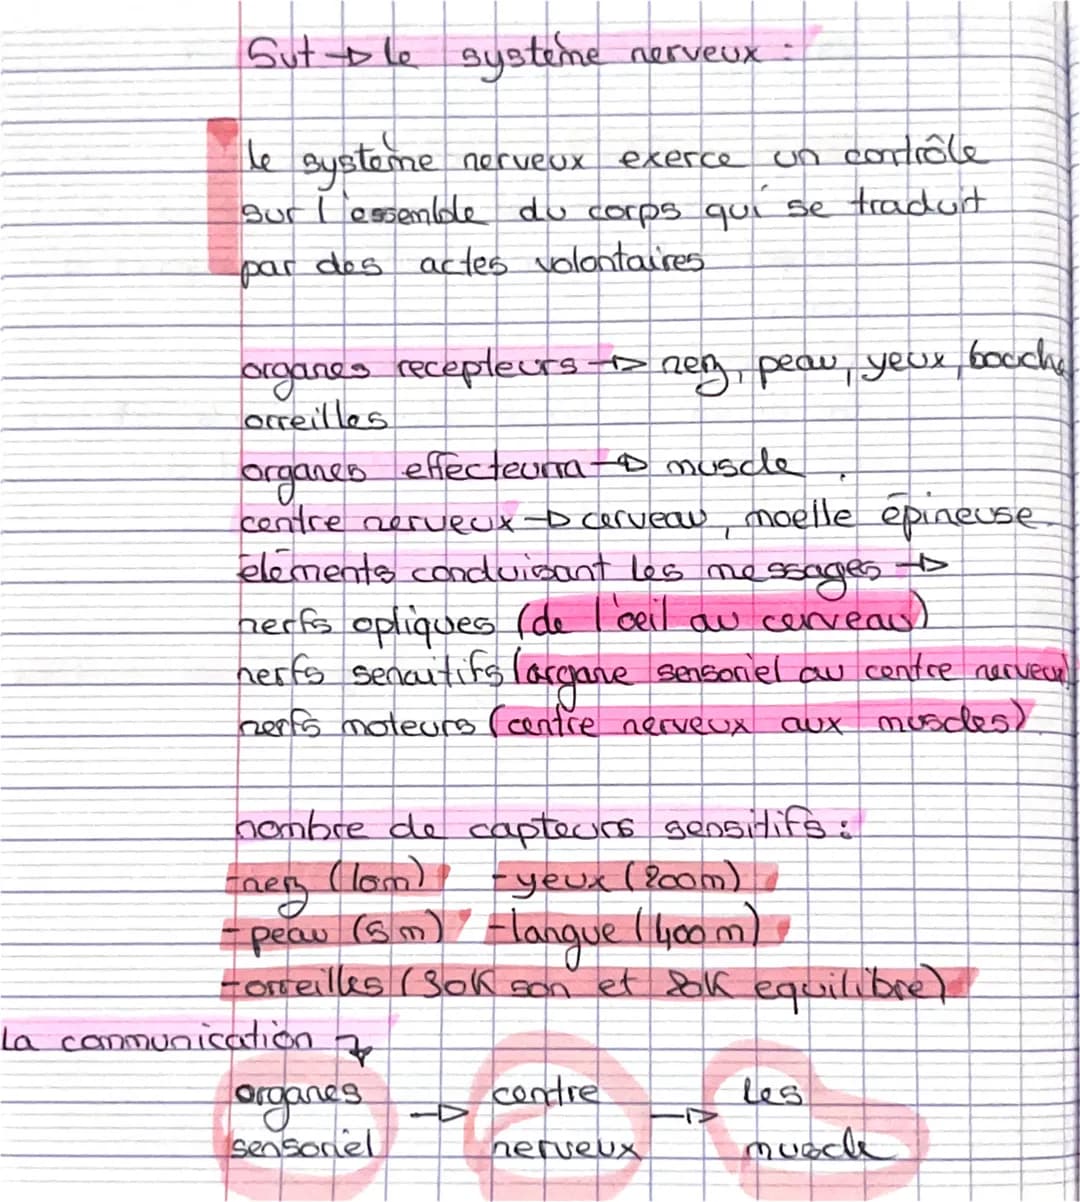 Svt → le système nerveux :
le système nerveux exerce un contrôle
sur l'essemble du corps qui se traduit
par des actes volontaires
organes recepteurs → nez, peau, yeux, bouche
orreilles
organes effecteurs → muscle
centre nerveux → cerveau, moelle épineuse
éléments conduisant les messages →
nerfs optiques (de l'oeil au cerveau)
nerfs sensitifs (organe sensoriel au centre nerveux)
nerfs moteurs (centre nerveux aux muscles)
nombre de capteurs sensitifs :
-nez (10m) -yeux (200m)
-peau (5m) -langue (400m)
-orreilles (30K son et 20K equilibre)
La communication
organes → centre → les
sensoriel nerveux muscle